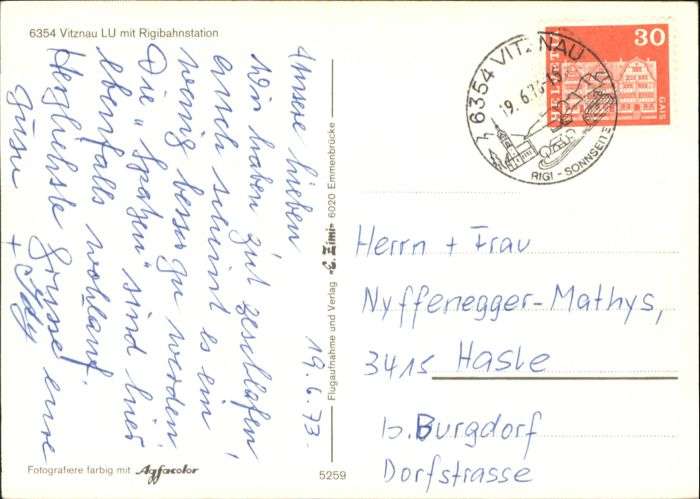 6354 Vitznau LU mit Rigibahnstation
19.6.73.
Unsere Lieben,
Wir haben gut geschlafen,
auch scheint es ein
wenig besser zu werden.
Die „Spatzen" sind hier
ebenfalls wohlauf.
Herzlichste Grüsse eure
+ Edy
Flugaufnahme und Verlag E. Zimi- 6020 Emmenbrücke
Fotografiere farbig mit Agfacolor
5259
6354 VITZNAU
19.6.73-15
RIGI - SONNSEITE
HELVETIA
30
GAIS
Herrn + Frau
Nyffenegger-Mathys,
3415 Hasle
b. Burgdorf
Dorfstrasse